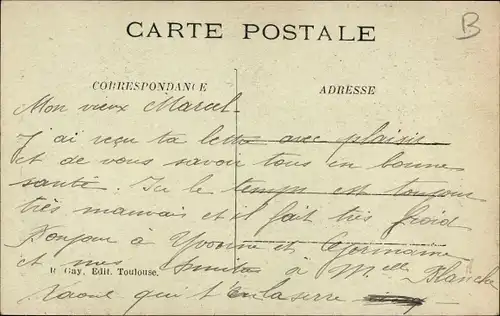 CARTE POSTALE
B
CORRESPONDANCE
ADRESSE
Mon vieux Marcel
J'ai reçu ta lettre avec plaisir
et de vous savoir tous en bonne
santé. Ici le temps est toujours
très mauvais et il fait très froid
Bonjour à Yvonne et Germaine
et mes à Melle Blanche
Gay, Edit. Toulouse.
Raoul qui t'enlasserre